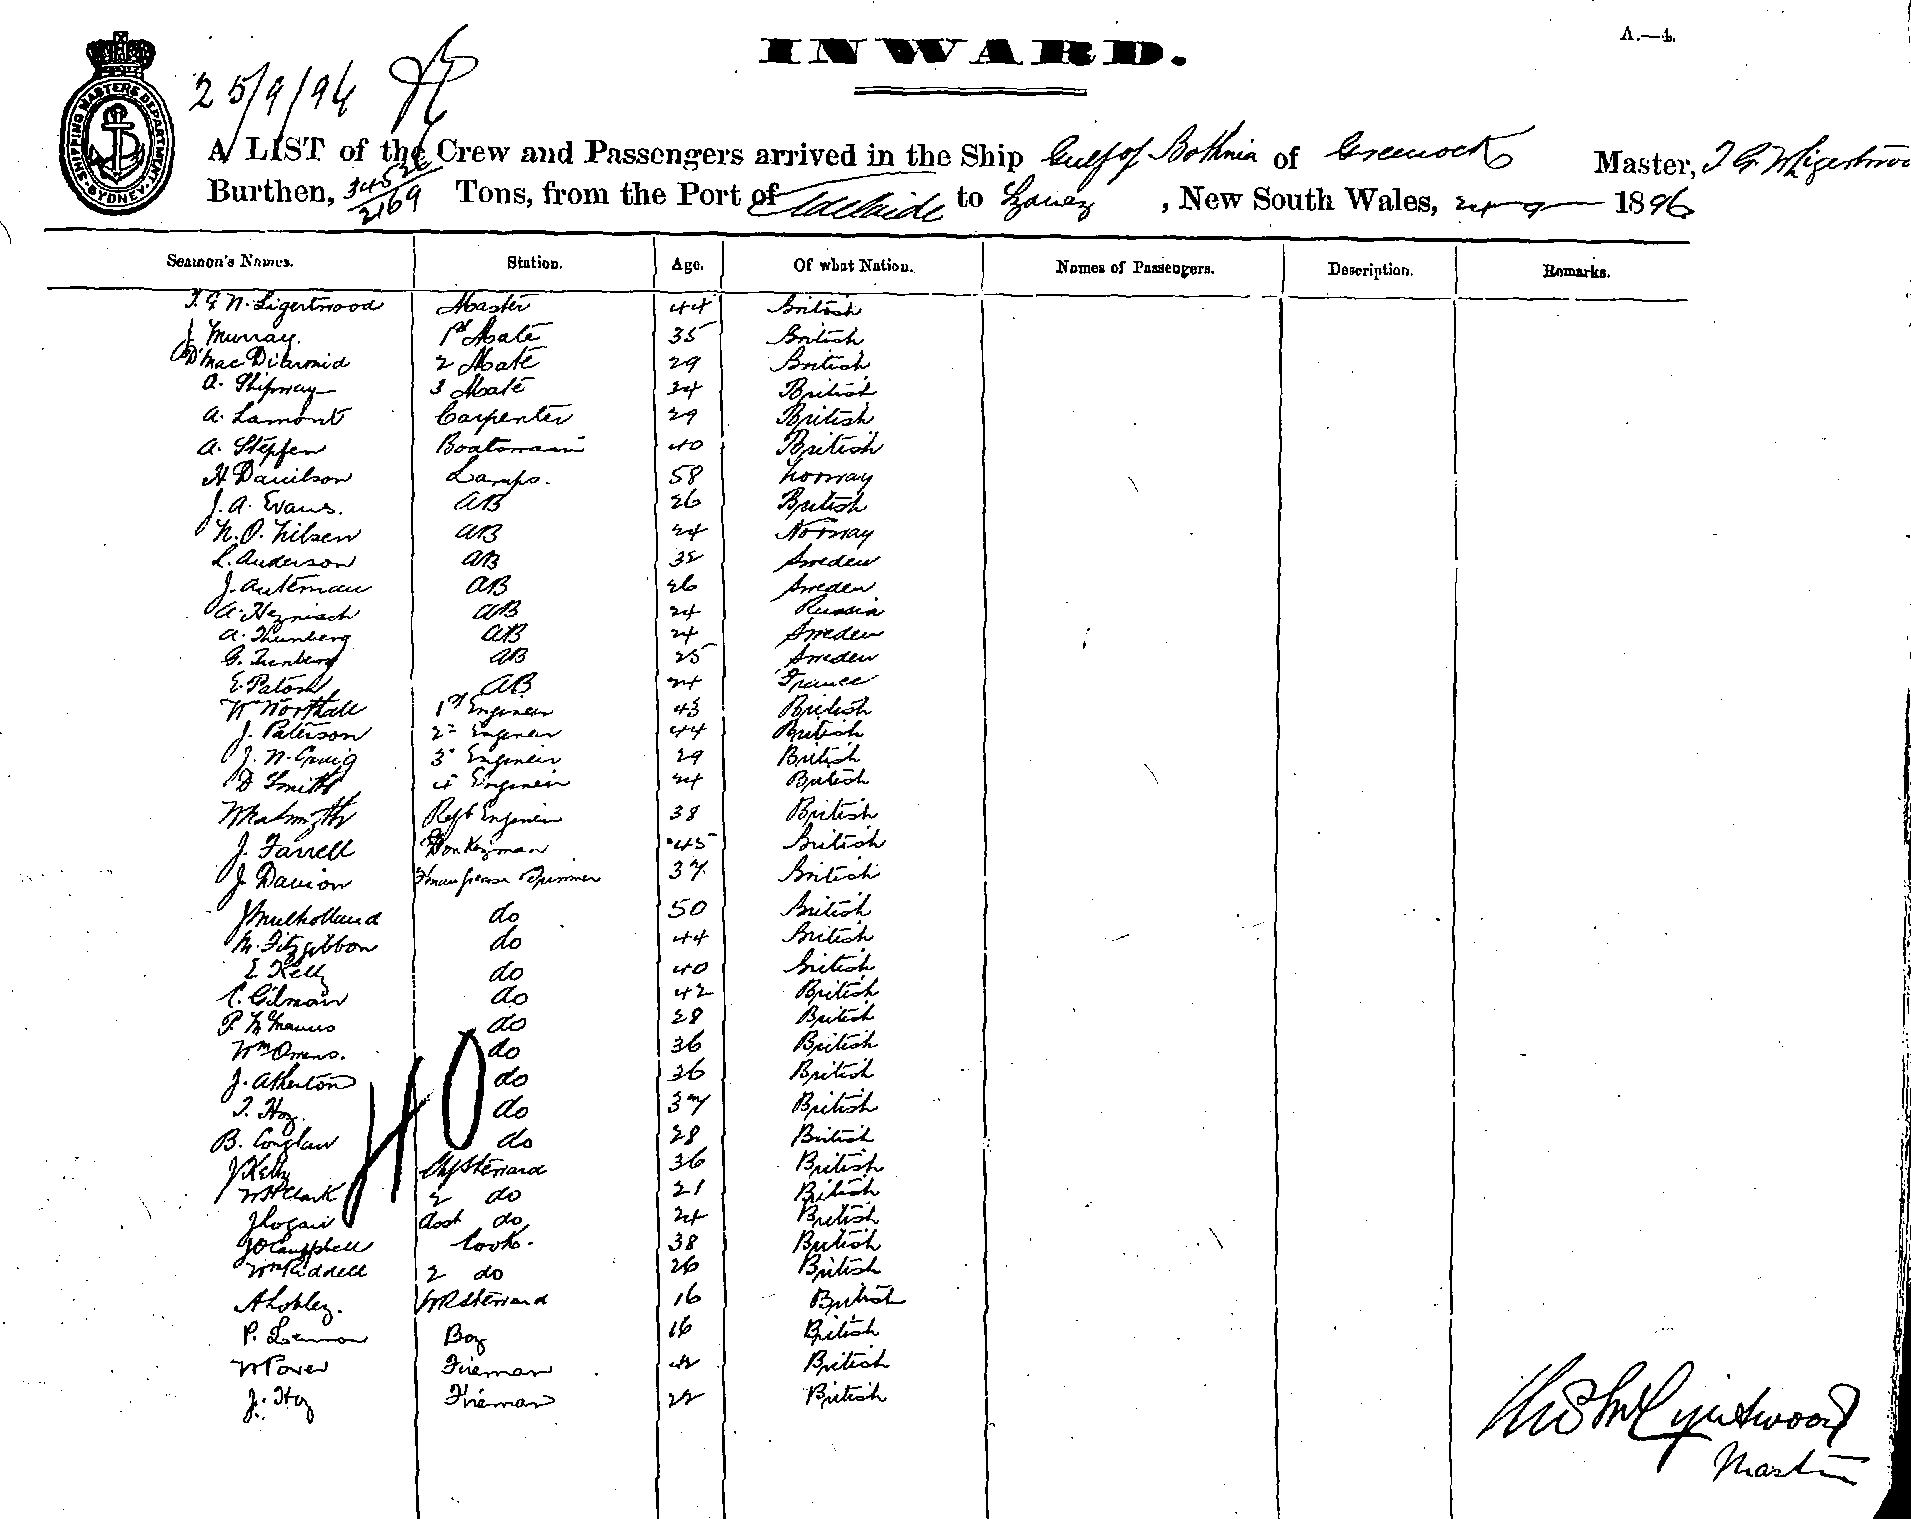 A.—4.
INWARD.
SHIPPING MASTERS DEPARTMENT SYDNEY
25/9/96
A LIST of the Crew and Passengers arrived in the Ship Gulf of Bothnia of Greenock Master, T G W Ligertwood
Burthen, 3452/2169 Tons, from the Port of Adelaide to Sydney, New South Wales, 24 9 1896
Seamen's Names. Station. Age. Of what Nation. Names of Passengers. Description. Remarks.
T. G W. Ligertwood Master 44 British
J Murray. 1st Mate 35 British
D MacDiarmid 2 Mate 29 British
A. Shipway 3 Mate 24 British
A. Lamont Carpenter 29 British
A. Stepfen Boatswain 40 British
H Danilson Lamps. 58 Norway
J. A. Evans. AB 26 British
N. O. Nilsen AB 24 Norway
L. Anderson AB 32 Sweden
J. Anterman AB 26 Sweden
A. Heynisch AB 24 Russia
A. Thunberg AB 24 Sweden
G. Tunberg AB 25 Sweden
E. Paton AB 24 France
W Worthall 1st Engineer 43 British
J. Paterson 2nd Engineer 44 British
J. N. Craig 3 Engineer 29 British
D Smith 4 Engineer 24 British
Refr Engineer 38 British
J. Farrell Donkeyman 45 British
J Davion Fman Greaser Trimmer 37 British
J Mulholland do 50 British
M. Fitzgibbon do 44 British
E Kelly do 40 British
C. Gilman do 42 British
P. McManus do 28 British
Wm Owens. do 36 British
J. Atherton do 36 British
T. Hoy. do 37 British
B. Conglan do 28 British
J Kelly Chf Steward 36 British
W H Clark 2 do 21 British
J Logan Asst do 24 British
J D Campbell Cook. 38 British
Wm Riddell 2 do 26 British
A Lobley. MR Steward 16 British
P. Lennon Boy 16 British
W Power Fireman 42 British
J. Hoy Fireman 22 British
40
Thos G W Ligertwood
Master